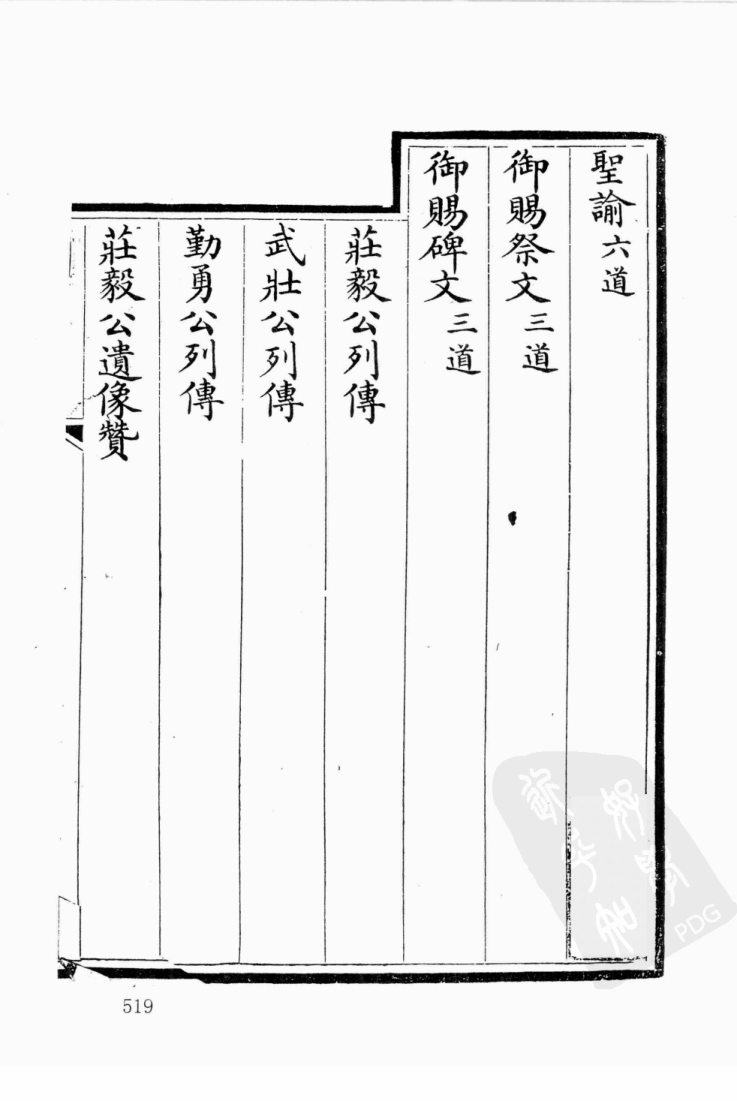 聖諭六道
御賜祭文三道
御賜碑文三道
莊毅公列傳
武壯公列傳
勤勇公列傳
莊毅公遺像贊
519
PDG